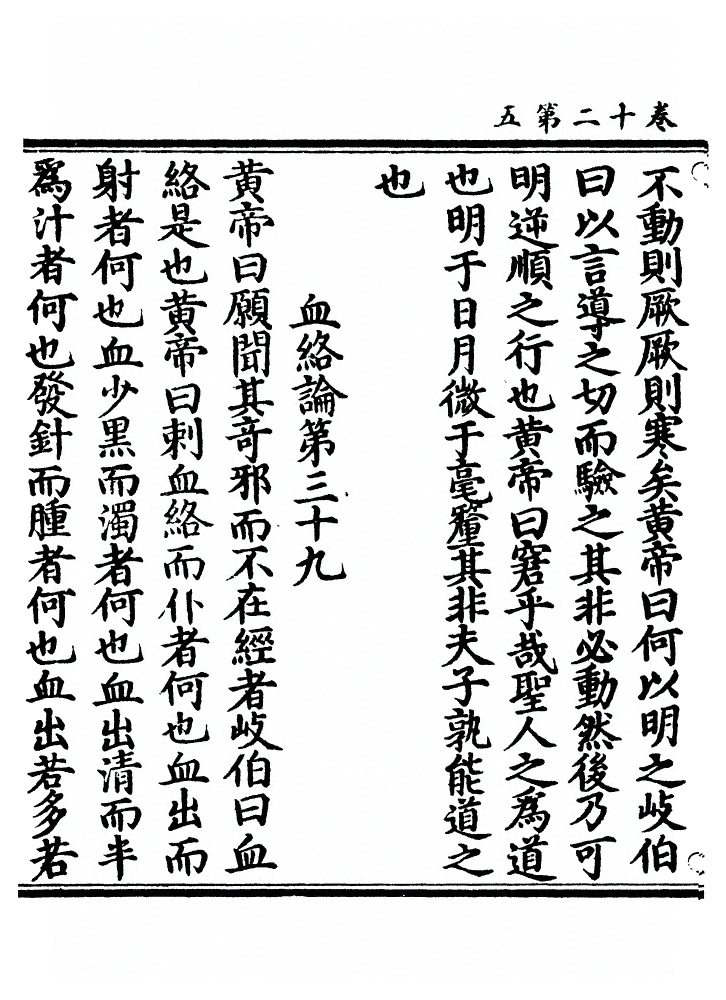 卷十二第五
不動則厥厥則寒矣黄帝曰何以明之歧伯
曰以言導之切而驗之其非必動然後乃可
明逆順之行也黄帝曰窘乎哉聖人之爲道
也明于日月微于毫釐其非夫子孰能道之
也
血絡論第三十九
黄帝曰願聞其竒邪而不在經者歧伯曰血
絡是也黄帝曰刺血絡而仆者何也血出而
射者何也血少黑而濁者何也血出清而半
爲汁者何也發針而腫者何也血出若多若